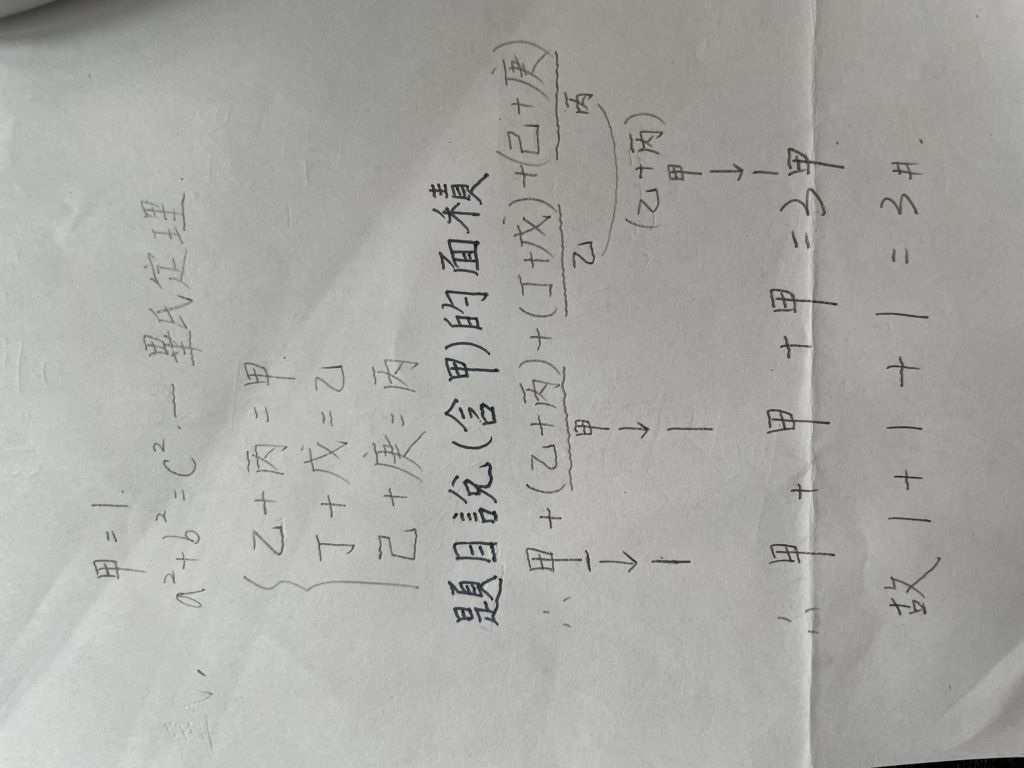 甲=1
a²+b²=c².一畢氏定理
乙+丙=甲
丁+戊=乙
己+庚=丙
題目說(含甲)的面積
∴甲+(乙+丙)+(丁+戊)+(己+庚)
甲 乙 丙
(乙+丙)
↓ ↓ 甲
1 1 ↓
1
∴甲+甲+甲=3甲
故 1+1+1=3#.